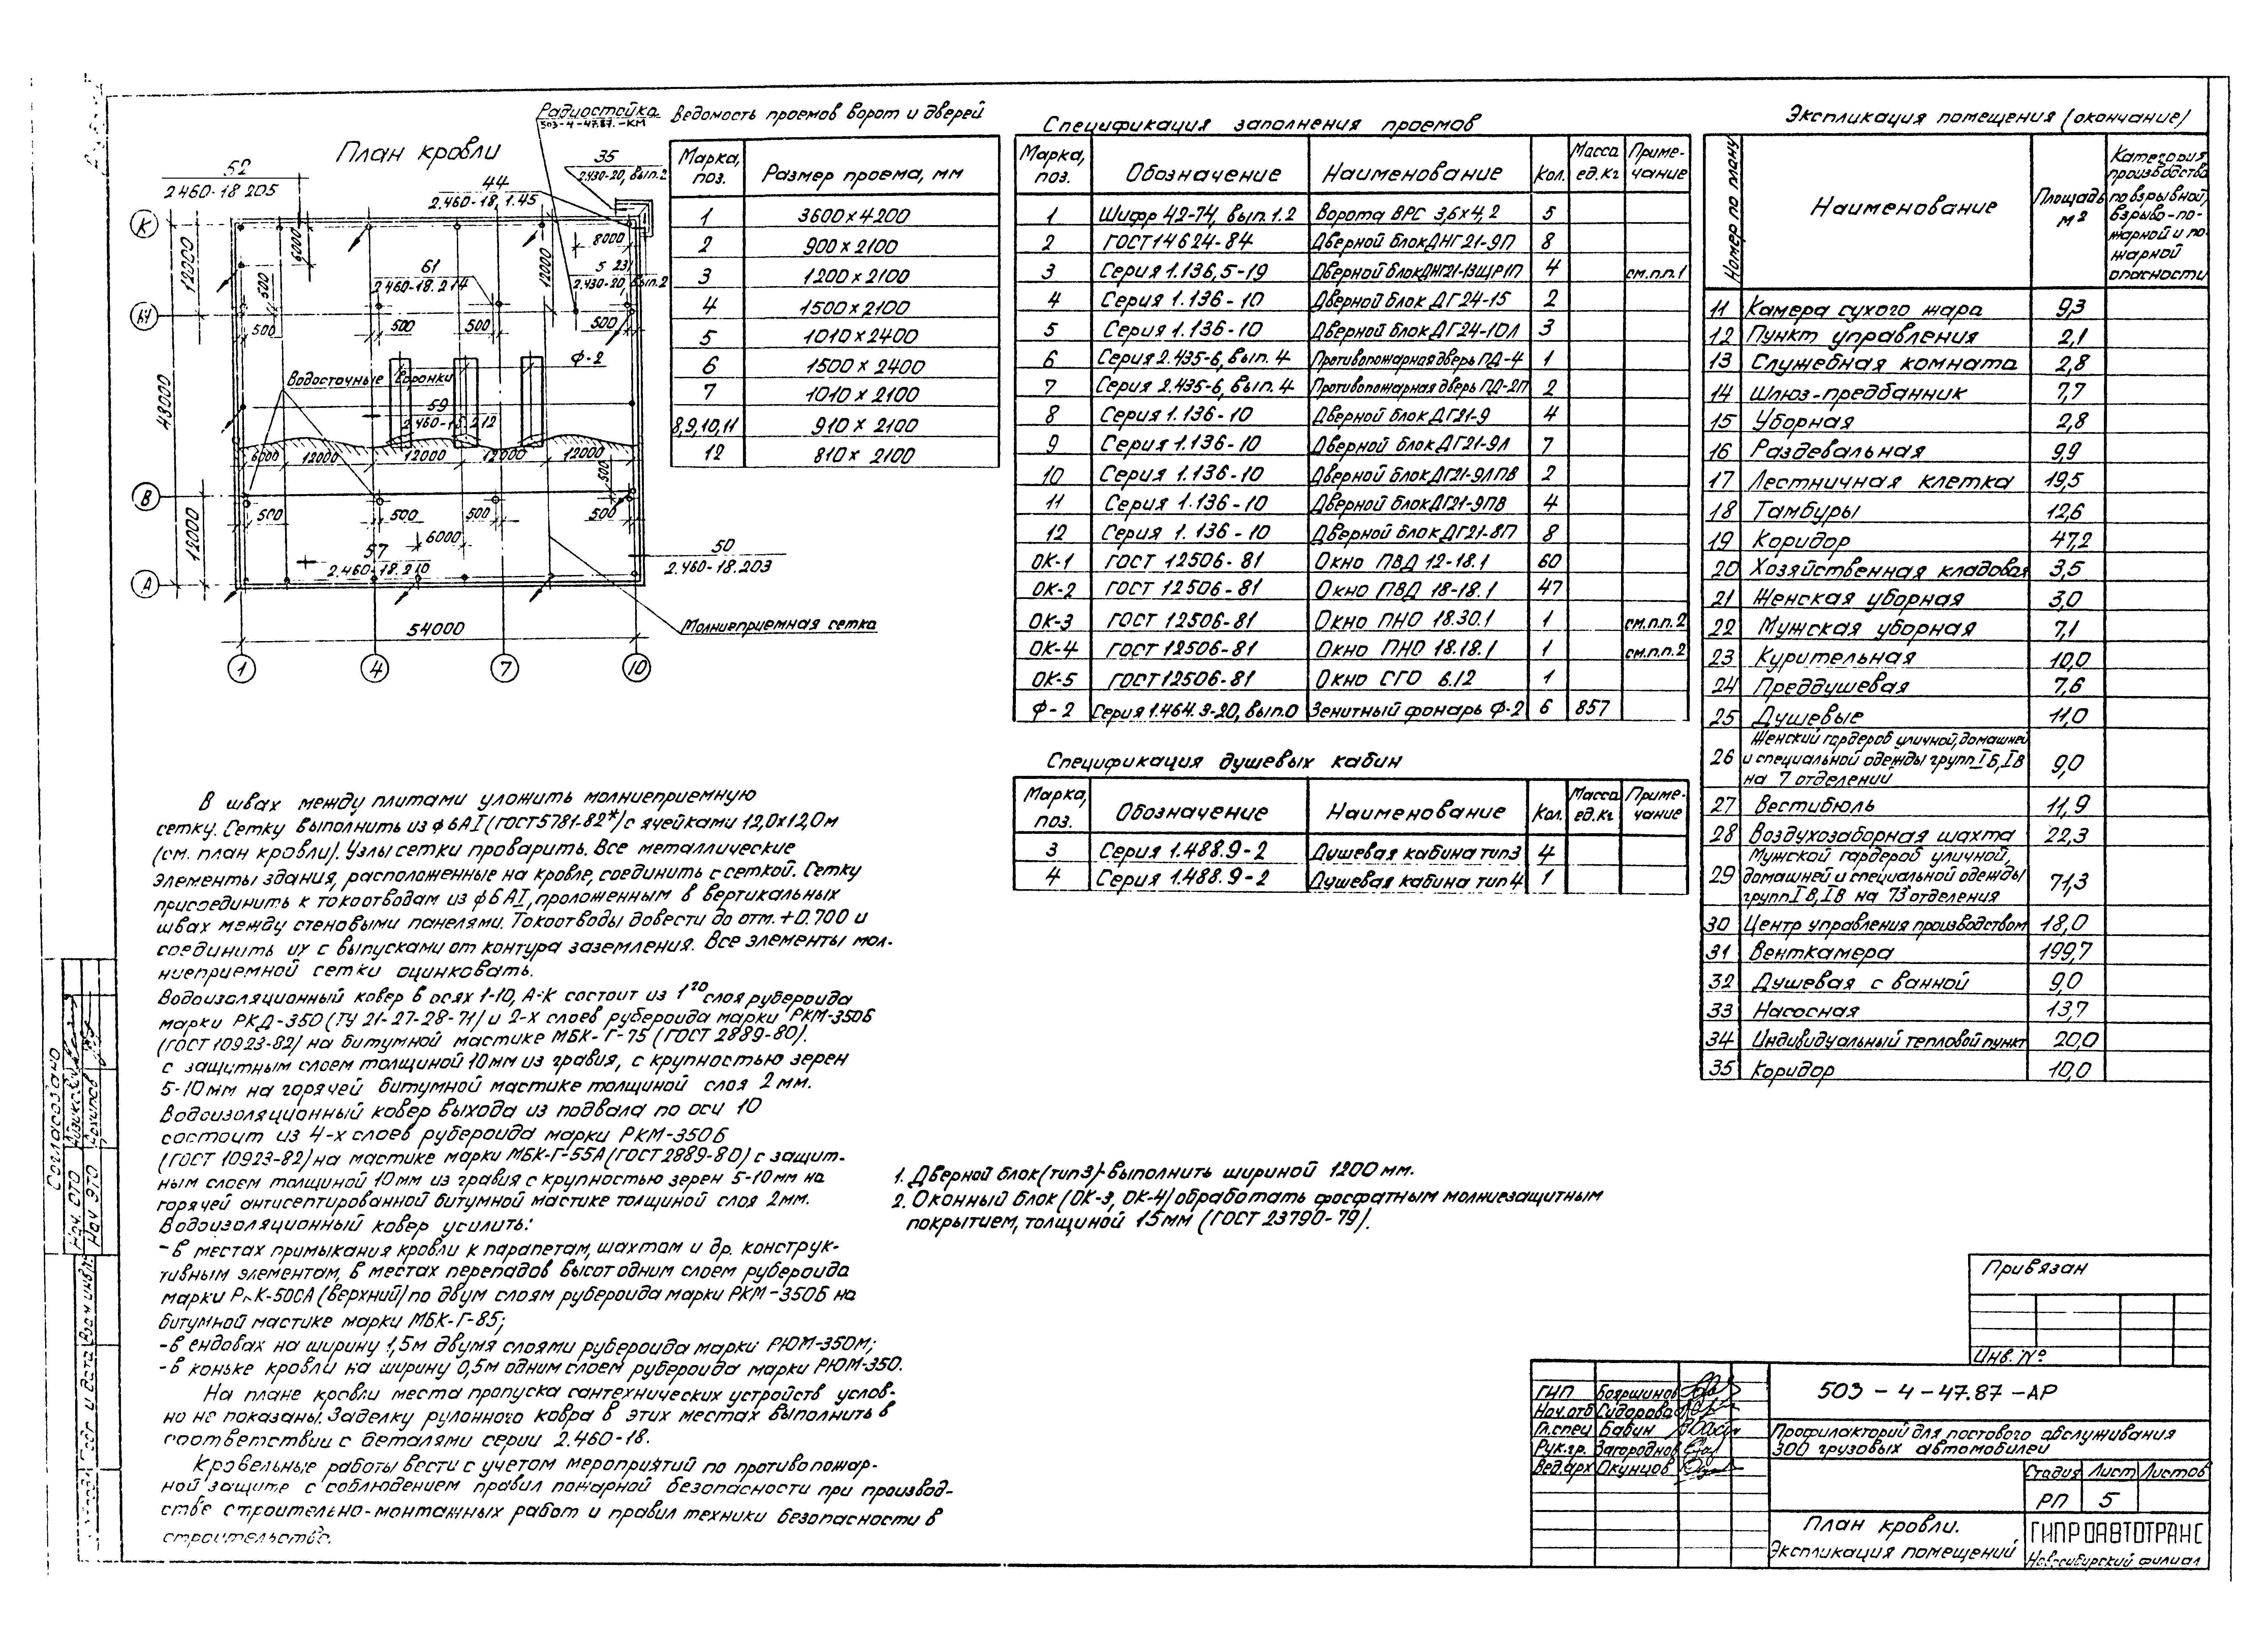 План кровли
Радиостойка
503-4-47.87.-КМ
52
2.460-18 205
44
2.460-18, 1.45
35
2.430-20, вып.2
К
12000
6000
8000
12000
500
61
2.460-18.214
2.430-20, вып.2
500
500
500
500
Ф-2
Водосточные воронки
59
2.460-18.212
48000
6000
12000
12000
12000
12000
В
500
500
500
500
500
6000
12000
57
2.460-18.210
50
2.460-18.203
А
54000
Молниеприемная сетка
1
4
7
10
Ведомость проемов ворот и дверей
Марка, поз.
Размер проема, мм
1 3600×4200
2 900×2100
3 1200×2100
4 1500×2100
5 1010×2400
6 1500×2400
7 1010×2100
8,9,10,11 910×2100
12 810×2100
Спецификация заполнения проемов
Марка, поз. Обозначение Наименование Кол. Масса ед.кг Приме-чание
1 Шифр 42-74, вып.1.2 Ворота ВРС 3,6×4,2 5
2 ГОСТ 14624-84 Дверной блок ДНГ 21-9П 8
3 Серия 1.136,5-19 Дверной блок ДНГ21-13ЩР1П 4 см.п.п.1
4 Серия 1.136-10 Дверной блок ДГ 24-15 2
5 Серия 1.136-10 Дверной блок ДГ24-10Л 3
6 Серия 2.435-6, вып.4 Противопожарная дверь ПД-4 1
7 Серия 2.435-6, вып.4 Противопожарная дверь ПД-2П 2
8 Серия 1.136-10 Дверной блок ДГ21-9 4
9 Серия 1.136-10 Дверной блок ДГ21-9Л 7
10 Серия 1.136-10 Дверной блок ДГ21-9ЛПВ 2
11 Серия 1.136-10 Дверной блок ДГ21-9ПВ 4
12 Серия 1.136-10 Дверной блок ДГ21-8П 8
ОК-1 ГОСТ 12506-81 Окно ПВД 12-18.1 60
ОК-2 ГОСТ 12506-81 Окно ПВД 18-18.1 47
ОК-3 ГОСТ 12506-81 Окно ПНО 18.30.1 1 см.п.п.2
ОК-4 ГОСТ 12506-81 Окно ПНО 18.18.1 1 см.п.п.2
ОК-5 ГОСТ 12506-81 Окно СГО 6.12 1
Ф-2 Серия 1.464.9-20, вып.0 Зенитный фонарь Ф-2 6 857
Спецификация душевых кабин
Марка, поз. Обозначение Наименование Кол. Масса ед.кг Приме-чание
3 Серия 1.488.9-2 Душевая кабина тип3 4
4 Серия 1.488.9-2 Душевая кабина тип4 1
Экспликация помещения (окончание)
Номер по плану Наименование Площадь м²
Категория
производства
по взрывной,
взрыво-по-
жарной и по
жарной
опасности
11 Камера сухого жара 9,3
12 Пункт управления 2,1
13 Служебная комната 2,8
14 Шлюз-предбанник 7,7
15 Уборная 2,8
16 Раздевальная 9,9
17 Лестничная клетка 19,5
18 Тамбуры 12,6
19 Коридор 47,2
20 Хозяйственная кладовая 3,5
21 Женская уборная 3,0
22 Мужская уборная 7,1
23 Курительная 10,0
24 Преддушевая 7,6
25 Душевые 11,0
Женский гардероб уличной, домашней
26 и специальной одежды групп Iб, Iв 9,0
на 7 отделений
27 Вестибюль 11,9
28 Воздухозаборная шахта 22,3
Мужской гардероб уличной,
29 домашней и специальной одежды 71,3
групп Iв, Iв на 73 отделения
30 Центр управления производством 18,0
31 Венткамера 199,7
32 Душевая с ванной 9,0
33 Насосная 13,7
34 Индивидуальный тепловой пункт 20,0
35 Коридор 10,0
В швах между плитами уложить молниеприемную
сетку. Сетку выполнить из ф 6АI (ГОСТ5781-82*) с ячейками 12,0х12,0м
(см. план кровли). Узлы сетки проварить. Все металлические
элементы здания, расположенные на кровле, соединить с сеткой. Сетку
присоединить к токоотводам из ф6АI, проложенным в вертикальных
швах между стеновыми панелями. Токоотводы довести до отм.+0.700 и
соединить их с выпусками от контура заземления. Все элементы мол-
ниеприемной сетки оцинковать.
Водоизоляционный ковер в осях 1-10, А-К состоит из 1го слоя рубероида
марки РКД-350 (ТУ 21-27-28-71) и 2-х слоев рубероида марки РКМ-350Б
(ГОСТ 10923-82) на битумной мастике МБК-Г-75 (ГОСТ 2889-80).
с защитным слоем толщиной 10мм из гравия, с крупностью зерен
5-10мм на горячей битумной мастике толщиной слоя 2мм.
Водоизоляционный ковер выхода из подвала по оси 10
состоит из 4-х слоев рубероида марки РКМ-350Б
(ГОСТ 10923-82) на мастике марки МБК-Г-55А (ГОСТ 2889-80) с защит-
ным слоем толщиной 10мм из гравия с крупностью зерен 5-10мм на
горячей антисептированной битумной мастике толщиной слоя 2мм.
Водоизоляционный ковер усилить:
- в местах примыкания кровли к парапетам, шахтам и др. конструк-
тивным элементам, в местах перепадов высот одним слоем рубероида
марки (верхний) по двум слоям рубероида марки РКМ-350Б на
битумной мастике марки МБК-Г-85;
- в ендовах на ширину 1,5м двумя слоями рубероида марки РЮМ-350М;
- в коньке кровли на ширину 0,5м одним слоем рубероида марки РЮМ-350.
На плане кровли места пропуска сантехнических устройств услов-
но не показаны. Заделку рулонного ковра в этих местах выполнить в
соответствии с деталями серии 2.460-18.
Кровельные работы вести с учетом мероприятий по противопожар-
ной защите с соблюдением правил пожарной безопасности при производ-
стве строительно-монтажных работ и правил техники безопасности в
строительстве.
1. Дверной блок (тип3)-выполнить шириной 1200мм.
2. Оконный блок (ОК-3, ОК-4) обработать фосфатным молниезащитным
покрытием, толщиной 15мм (ГОСТ 23790-79).
Согласовано
Нач. ОТО
Нач ЭТО
Привязан
Инв. №
ГИП Бояршинов
Нач.отд Сидорова
Гл.спец Бабин
Рук.гр. Загороднов
Вед.арх Окунцов
503-4-47.87-АР
Профилакторий для постового обслуживания
300 грузовых автомобилей
Стадия Лист Листов
РП 5
План кровли.
Экспликация помещений
ГИПРОАВТОТРАНС
Новосибирский филиал